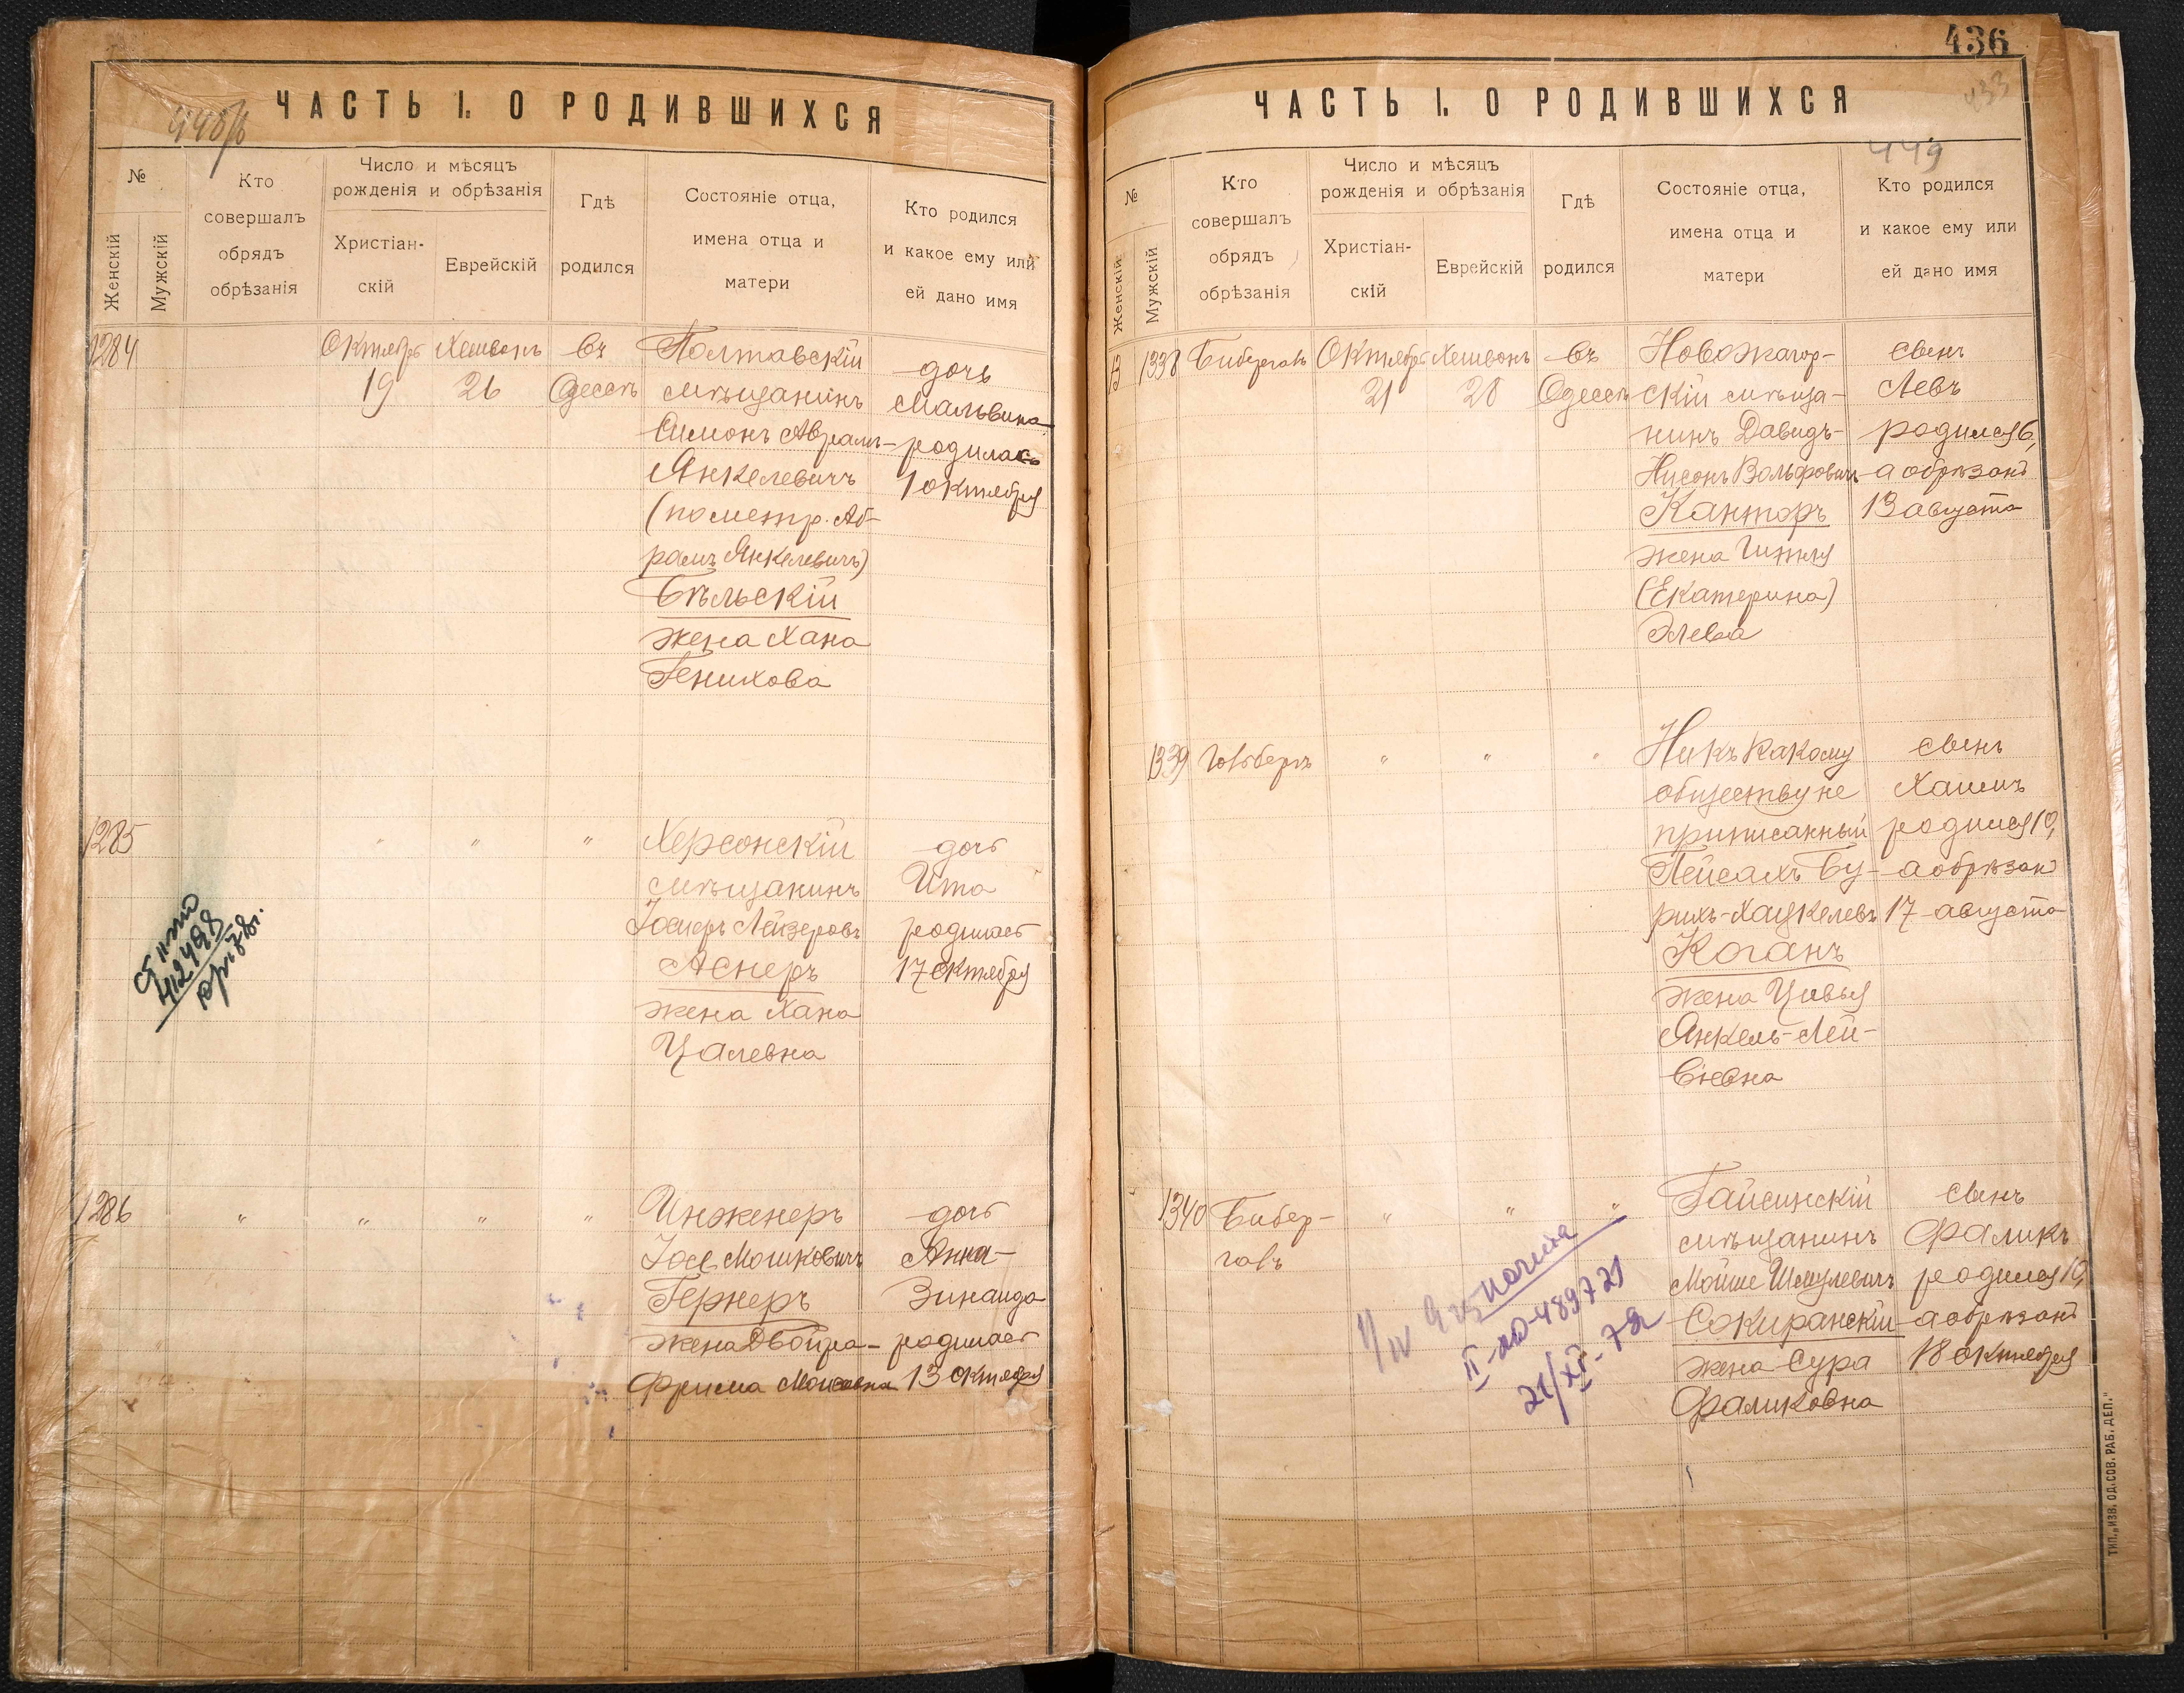 448/б
ЧАСТЬ I. О РОДИВШИХСЯ
№
Женскій
Мужскій
Кто
совершалъ
обрядъ
обрѣзанія
Число и мѣсяцъ
рожденія и обрѣзанія
Христіан-
скій
Еврейскій
Гдѣ
родился
Состояніе отца,
имена отца и
матери
Кто родился
и какое ему или
ей дано имя
1284
Октябрь
19
Хешвонъ
26
въ
Одессѣ
Полтавскій
мѣщанинъ
Симонъ Абрамъ-
Янкелевичъ
(по метр. Аб-
рамъ Янкелевичъ)
Бѣльскій
жена Хана
Генихова
дочь
Мальвина
родилась
1 октября
1285
"
"
"
Херсонскій
мѣщанинъ
Іосифъ Лейзеровъ
Аснеръ
жена Хана
Цалевна
дочь
Ита
родилась
17 октября
412498
1286
"
"
"
"
Инженеръ
Іосе Мошковичъ
Гернеръ
жена Двойра-
Фрима Моисеевна
дочь
Анна-
Зинаида
родилась
13 октября
436
433
449
ЧАСТЬ I. О РОДИВШИХСЯ
№
Женскій
Мужскій
Кто
совершалъ
обрядъ
обрѣзанія
Число и мѣсяцъ
рожденія и обрѣзанія
Христіан-
скій
Еврейскій
Гдѣ
родился
Состояніе отца,
имена отца и
матери
Кто родился
и какое ему или
ей дано имя
1338
Бибергалъ
Октябрь
21
Хешвонъ
28
въ
Одессѣ
Новожагор-
скій мѣща-
нинъ Давидъ-
Нисонъ Вольфовичъ
Канторъ
жена Гитля
(Екатерина)
Элевна
сынъ
Левъ
родился 6,
а обрѣзанъ
13 августа
1339
Гольбергъ
"
"
"
Ни къ какому
обществу не
приписанный
Пейсахъ Бу-
рихъ-Хацкелевъ
Коганъ
жена Цивья
Янкель-Лей-
бовна
сынъ
Хаимъ
родился 10,
а обрѣзанъ
17 августа
1340
Бибер-
галъ
"
"
"
Гайсинскій
мѣщанинъ
Мойше Шмулевичъ
Сокиранскій
жена Сура
Фаликовна
сынъ
Фаликъ
родился 10,
а обрѣзанъ
18 октября
II-МЮ-489721
21/XI-72
ТИП. „ИЗВ. ОД. СОВ. РАБ. ДЕП."